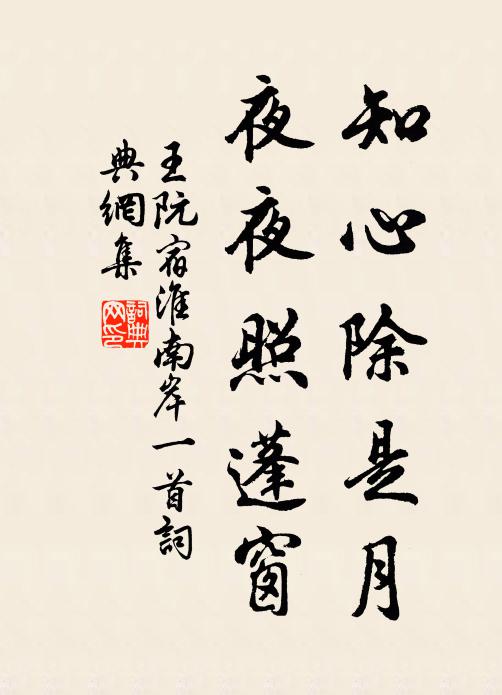 知心除是月
夜夜照蓬窗
王阮宿淮南岸一首詞
典網集
詞典网印